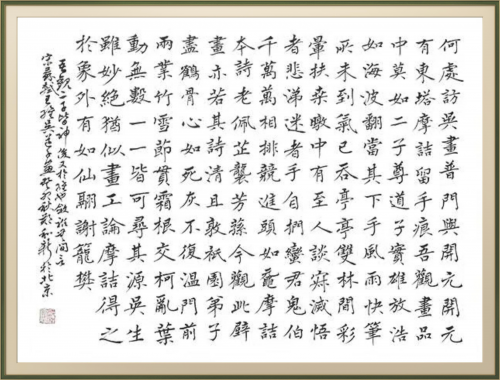 何處訪吳畫普門與開元開元
有東塔摩詰留手痕吾觀畫品
中莫如二子尊道子實雄放浩
如海波翻當其下手風雨快筆
所未到氣已吞亭亭雙林間彩
暈扶桑暾中有至人談寂滅悟
者悲涕迷者手自捫蠻君鬼伯
千萬萬相排競進頭如黿摩詰
本詩老佩芷襲芳蓀今觀此壁
畫亦若其詩清且敦祇園弟子
盡鶴骨心如死灰不復溫門前
兩叢竹雪節貫霜根交柯亂葉
動無數一一皆可尋其源吳生
雖妙絕猶以畫工論摩詰得之
於象外有如仙翮謝籠樊
吾觀二子皆神俊又於維也斂衽無間言
宋蘇軾王維吳道子畫 於北京